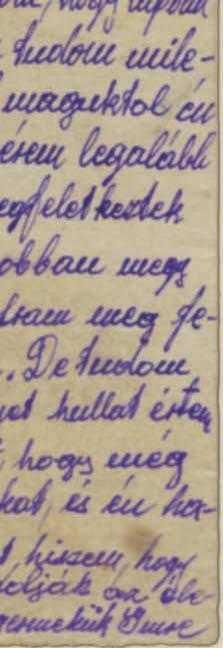 hogy
tudom mile-
maguktol én
érem legalább
egfeletkeztek
obban megy
meg fe-
. De tudom
hullat értem
, hogy még
kat, és én ha-
t, hiszem, hogy
az éle-
Imre